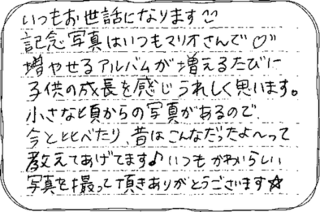 いつもお世話になります☺
記念写真はいつもマリオさんで♡
増やせるアルバムが増えるたびに
子供の成長を感じうれしく思います。
小さな頃からの写真があるので、
今と比べたり、昔はこんなだったよ〜って
教えてあげてます♪いつもかわいらしい
写真を撮って頂きありがとうございます☆